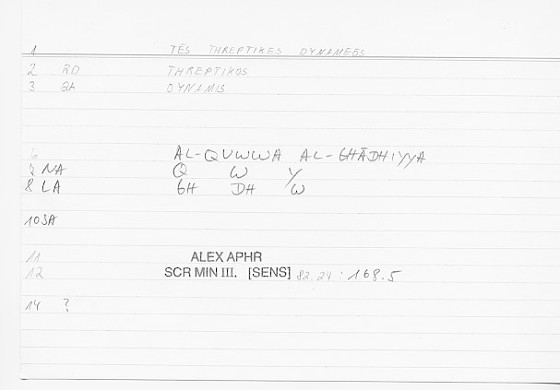 1 TĒS THREPTIKĒS DYNAMEŌS
2 RD THREPTIKOS
3 GA DYNAMIS
6 AL-QUWWA AL-GHĀDHIYYA
7 NA Q W Y
8 LA GH DH W
10 SA
11 ALEX APHR
12 SCR MIN III. [SENS] 82.24 : 168.5
14 ?